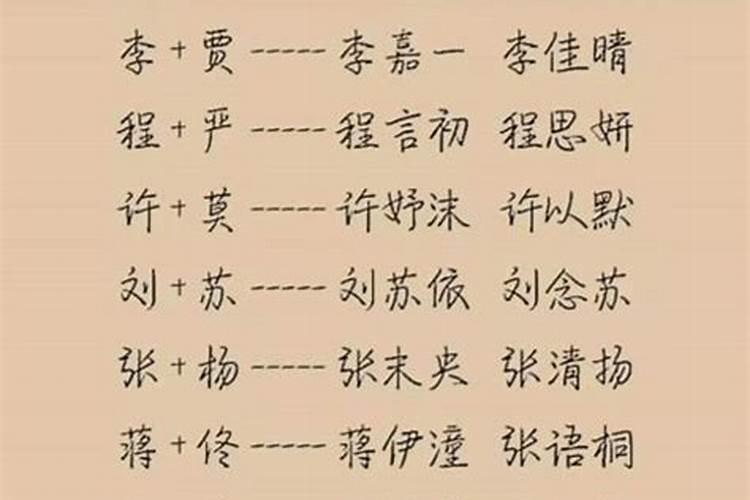 李+贾-----李嘉一 李佳晴
程+严-----程言初 程思妍
许+莫-----许妤沫 许以默
刘+苏-----刘苏依 刘念苏
张+杨-----张末央 张清扬
蒋+佟-----蒋伊潼 张语桐